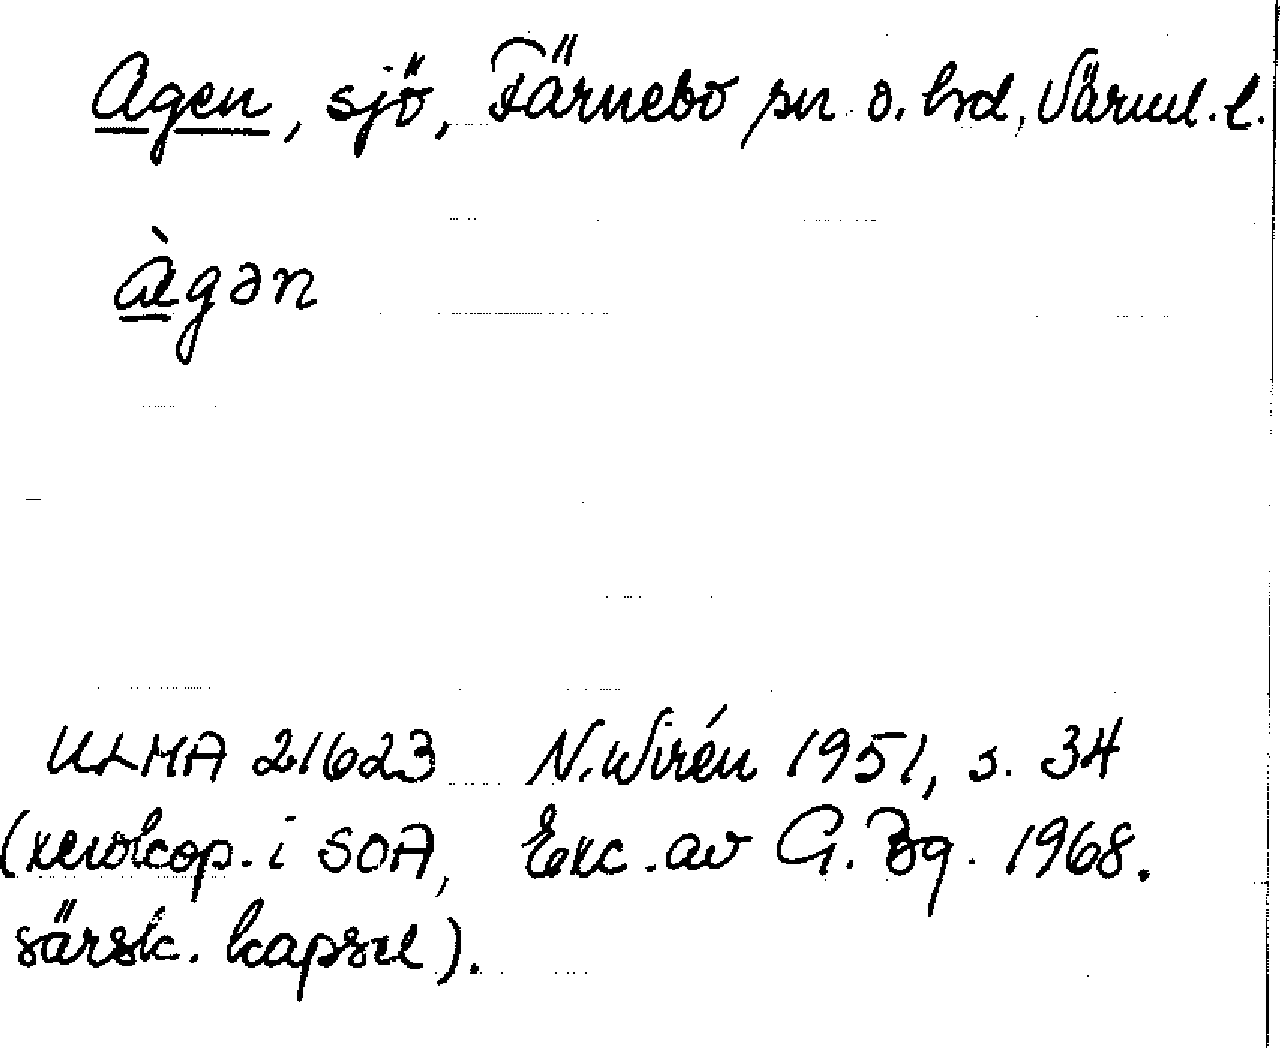 Agen, sjö, Färnebo sn o. hd, Värml. l.
àgən
ULMA 21623 N. Wirén 1951, s. 34
(xerokop. i SOA, Exc. av G. Bg. 1968.
särsk. kapsel).